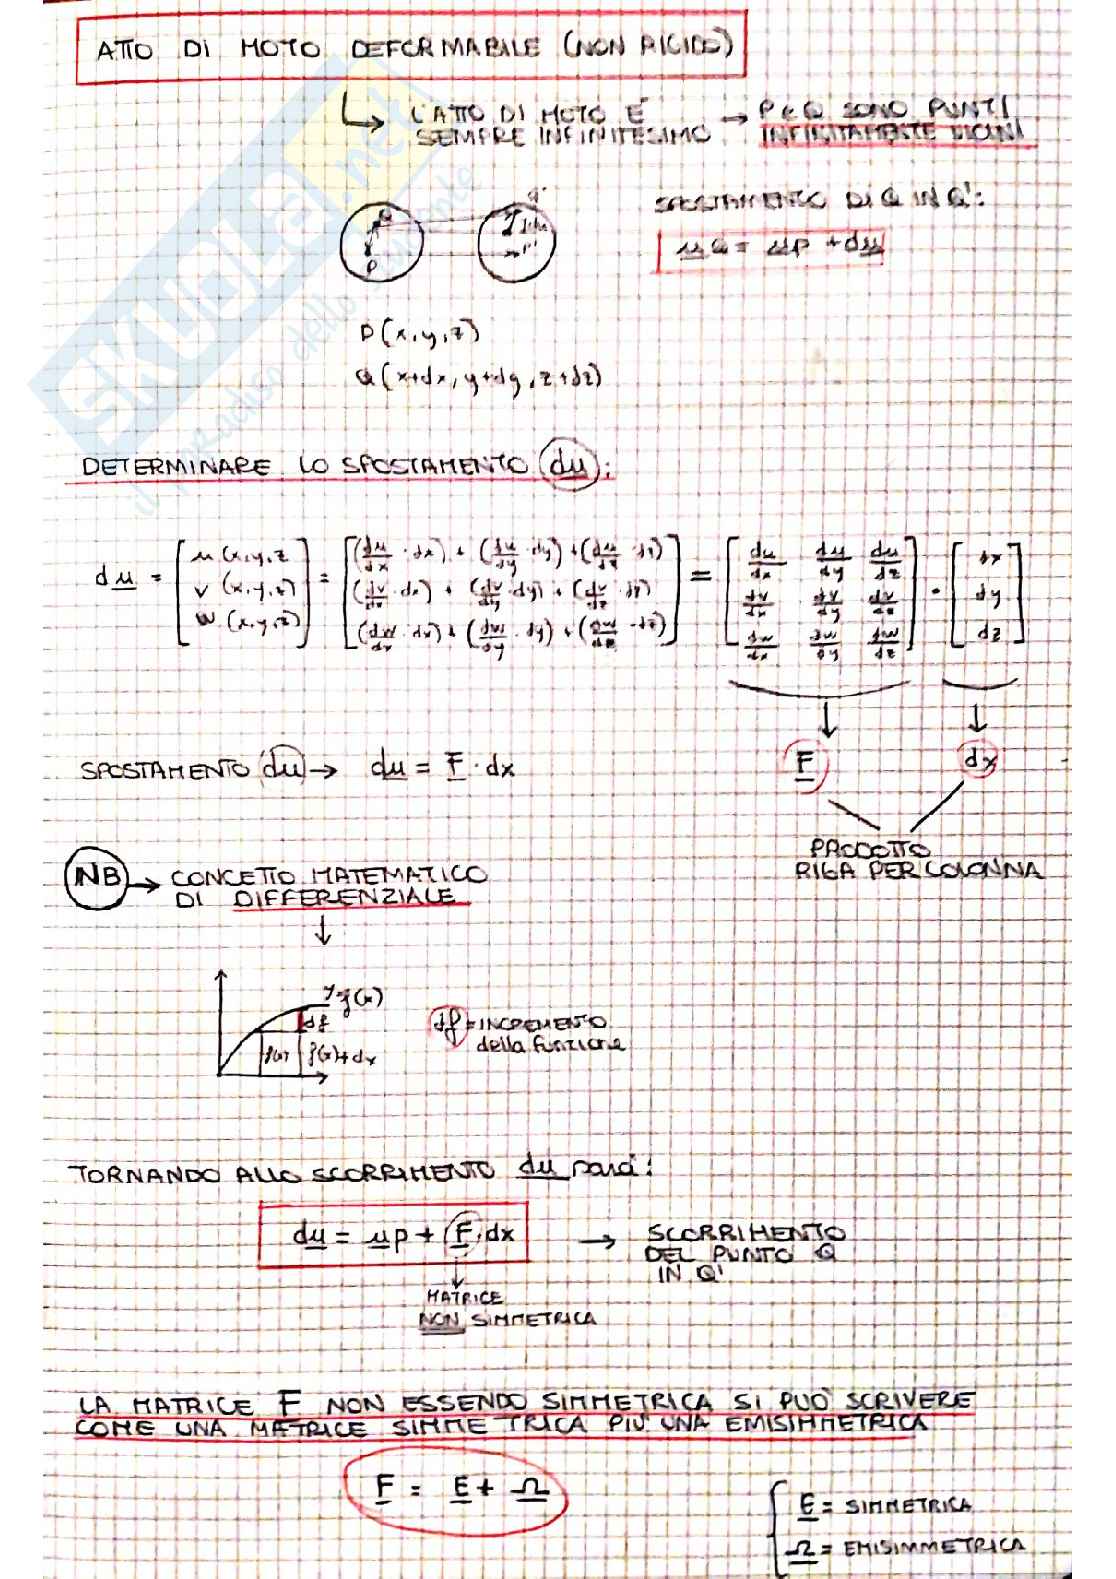 ATTO DI MOTO DEFORMABILE (NON RIGIDO)
L'ATTO DI MOTO E' → P e Q SONO PUNTI
SEMPRE INFINITESIMO INFINITAMENTE VICINI
SPOSTAMENTO DI Q IN Q':
Q Q'
uQ = up + du
P P'
P(x,y,z)
Q(x+dx, y+dy, z+dz)
DETERMINARE LO SPOSTAMENTO du:
du = [u(x,y,z ; v(x,y,z) ; w(x,y,z)] = [(du/dx · dx) + (du/dy · dy) + (du/dz · dz) ; (dv/dx · dx) + (dv/dy · dy) + (dv/dz · dz) ; (dw/dx · dx) + (dw/dy · dy) + (dw/dz · dz)] = [du/dx du/dy du/dz ; dv/dx dv/dy dv/dz ; dw/dx dw/dy dw/dz] · [dx ; dy ; dz]
SPOSTAMENTO du → du = F · dx
F dx
PRODOTTO
RIGA PER COLONNA
NB → CONCETTO MATEMATICO
DI DIFFERENZIALE
y=f(x)
df
f(x) f(x)+dx
df = INCREMENTO
della funzione
TORNANDO ALLO SCORRIMENTO du sarà:
du = up + F · dx → SCORRIMENTO
DEL PUNTO Q
IN Q'
MATRICE
NON SIMMETRICA
LA MATRICE F NON ESSENDO SIMMETRICA SI PUÒ SCRIVERE
COME UNA MATRICE SIMMETRICA PIÙ UNA EMISIMMETRICA
F = E + Ω
E = SIMMETRICA
Ω = EMISIMMETRICA
SKUOLA.net
il paradiso dello studente